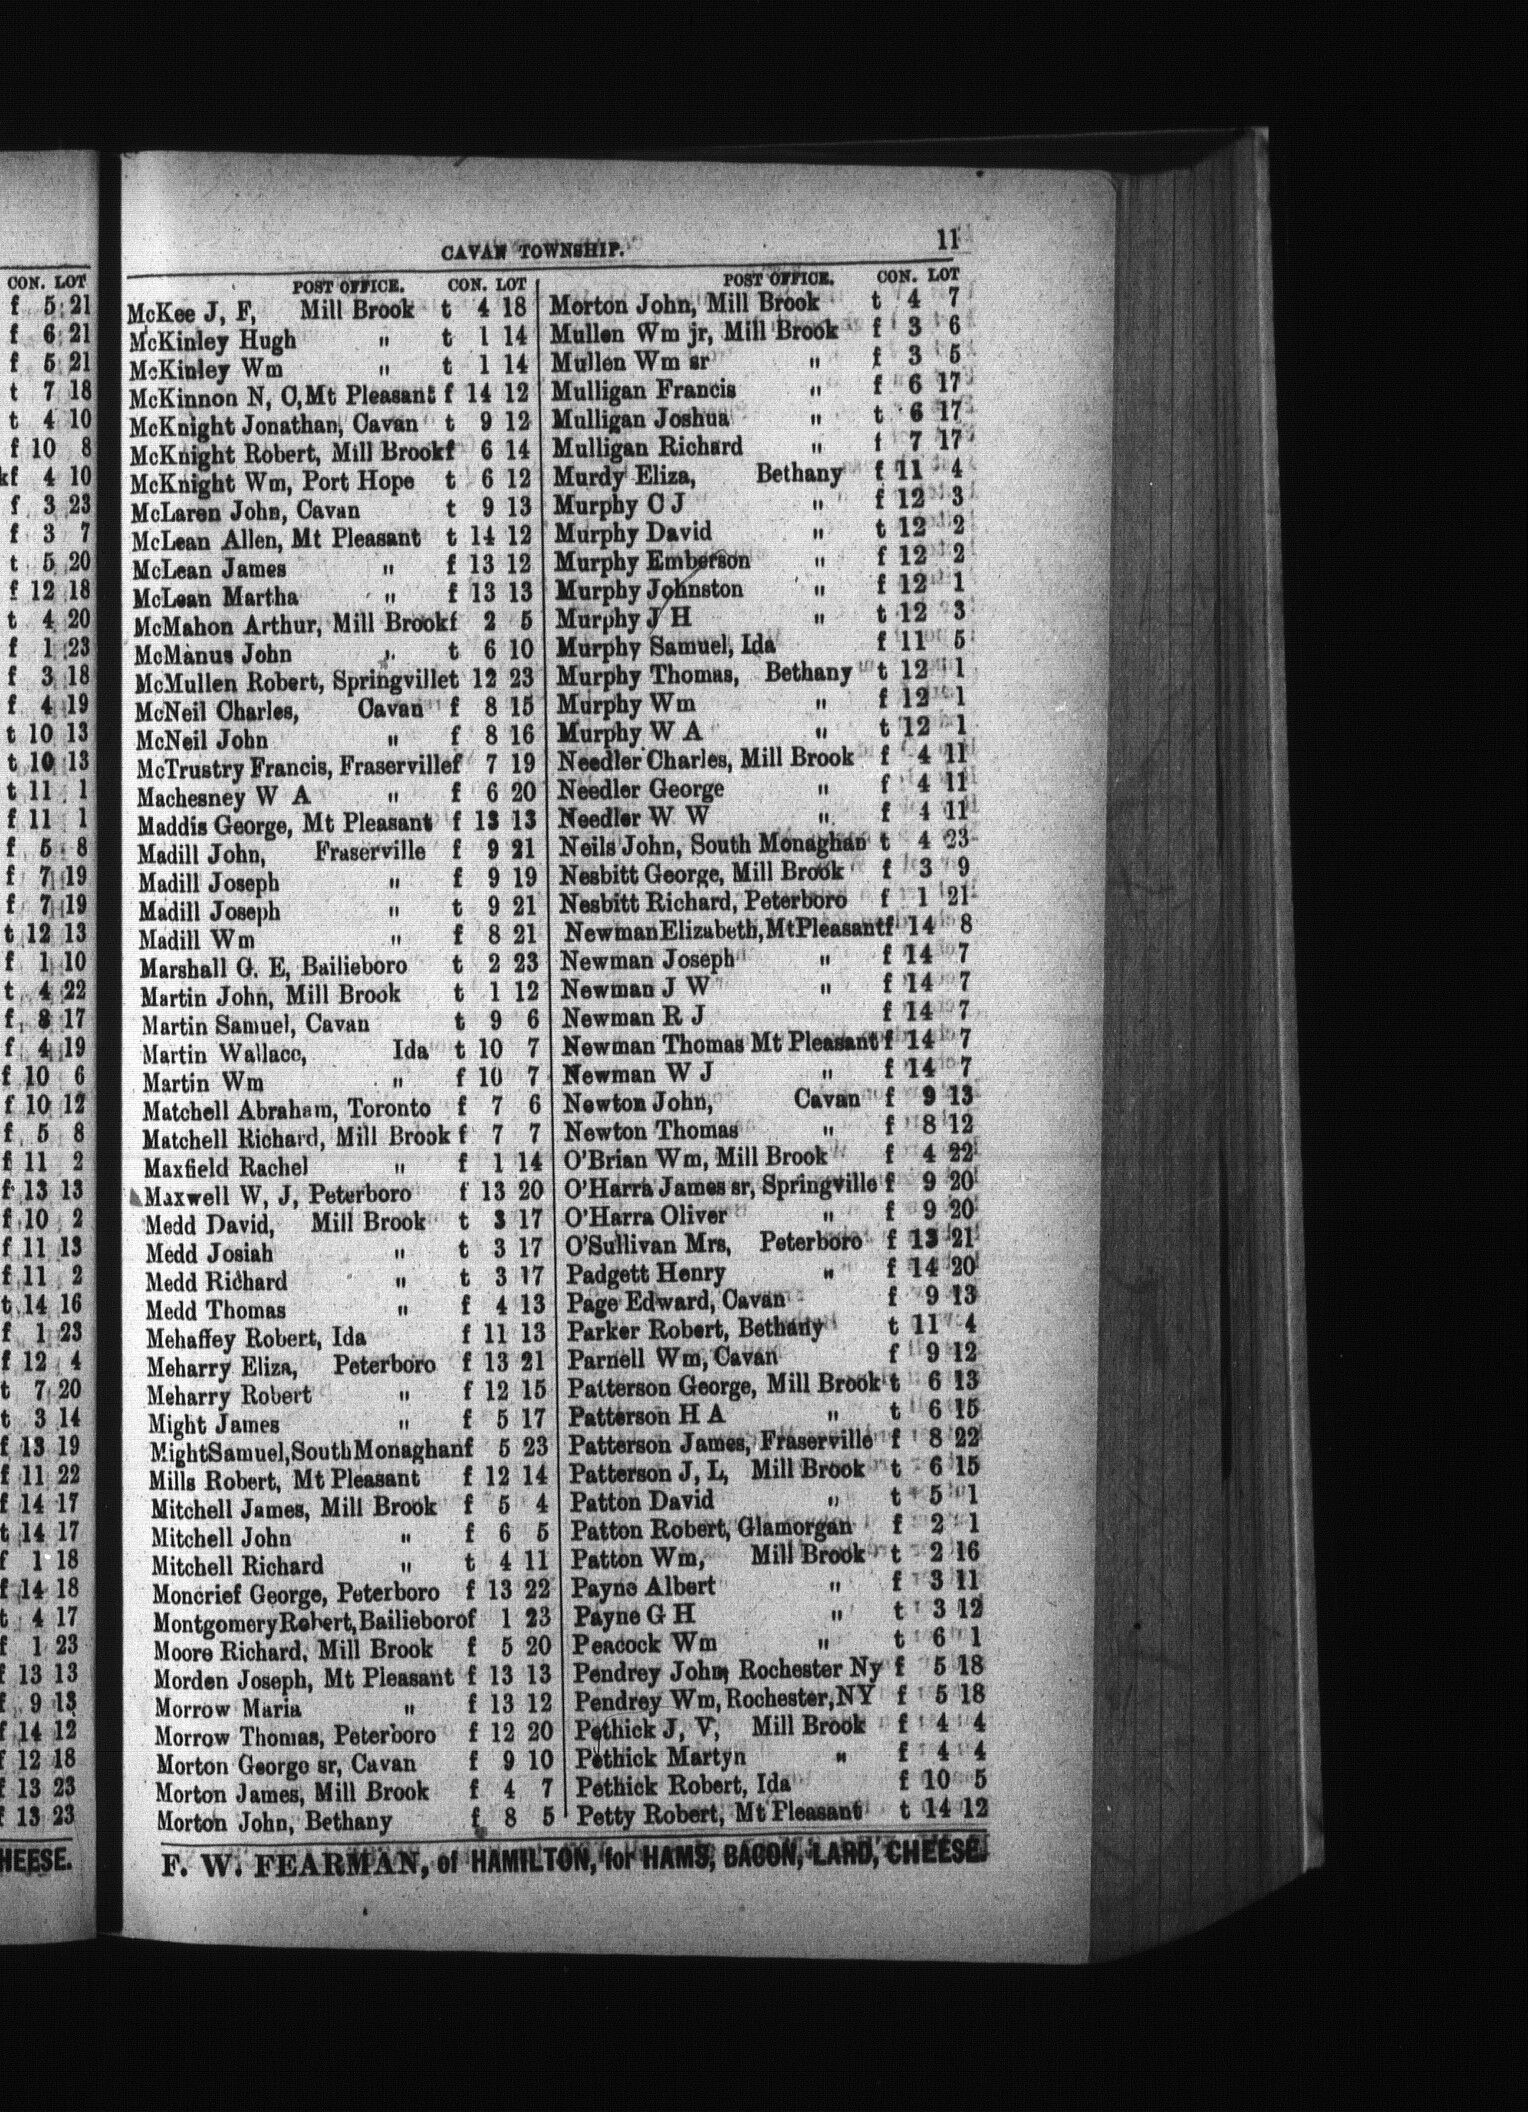 CON. LOT
f 5 21
f 6 21
f 5 21
t 7 18
t 4 10
f 10 8
kf 4 10
f 3 23
f 3 7
t 5 20
f 12 18
t 4 20
f 1 23
f 3 18
f 4 19
t 10 13
t 10 13
t 11 1
f 11 1
f 5 8
f 7 19
f 7 19
t 12 13
f 1 10
t 4 22
f 8 17
f 4 19
f 10 6
f 10 12
f 5 8
f 11 2
f 13 13
f 10 2
f 11 13
f 11 2
t 14 16
f 1 23
f 12 4
t 7 20
t 3 14
f 13 19
f 11 22
f 14 17
t 14 17
f 1 18
f 14 18
t 4 17
f 1 23
f 13 13
f 9 13
f 14 12
f 12 18
f 13 23
f 13 23
HEESE.
CAVAN TOWNSHIP. 11
POST OFFICE. CON. LOT
McKee J, F, Mill Brook t 4 18
McKinley Hugh " t 1 14
McKinley Wm " t 1 14
McKinnon N, C, Mt Pleasant f 14 12
McKnight Jonathan, Cavan t 9 12
McKnight Robert, Mill Brook f 6 14
McKnight Wm, Port Hope t 6 12
McLaren John, Cavan t 9 13
McLean Allen, Mt Pleasant t 14 12
McLean James " f 13 12
McLean Martha " f 13 13
McMahon Arthur, Mill Brook f 2 5
McManus John " t 6 10
McMullen Robert, Springville t 12 23
McNeil Charles, Cavan f 8 15
McNeil John " f 8 16
McTrustry Francis, Fraserville f 7 19
Machesney W A " f 6 20
Maddis George, Mt Pleasant f 13 13
Madill John, Fraserville f 9 21
Madill Joseph " f 9 19
Madill Joseph " t 9 21
Madill Wm " f 8 21
Marshall G. E, Bailieboro t 2 23
Martin John, Mill Brook t 1 12
Martin Samuel, Cavan t 9 6
Martin Wallace, Ida t 10 7
Martin Wm " f 10 7
Matchell Abraham, Toronto f 7 6
Matchell Richard, Mill Brook f 7 7
Maxfield Rachel " f 1 14
Maxwell W, J, Peterboro f 13 20
Medd David, Mill Brook t 3 17
Medd Josiah " t 3 17
Medd Richard " t 3 17
Medd Thomas " f 4 13
Mehaffey Robert, Ida f 11 13
Meharry Eliza, Peterboro f 13 21
Meharry Robert " f 12 15
Might James " f 5 17
Might Samuel, South Monaghan f 5 23
Mills Robert, Mt Pleasant f 12 14
Mitchell James, Mill Brook f 5 4
Mitchell John " f 6 5
Mitchell Richard " t 4 11
Moncrief George, Peterboro f 13 22
Montgomery Robert, Bailieboro f 1 23
Moore Richard, Mill Brook f 5 20
Morden Joseph, Mt Pleasant f 13 13
Morrow Maria " f 13 12
Morrow Thomas, Peterboro f 12 20
Morton George sr, Cavan f 9 10
Morton James, Mill Brook f 4 7
Morton John, Bethany f 8 5
POST OFFICE. CON. LOT
Morton John, Mill Brook t 4 7
Mullen Wm jr, Mill Brook f 3 6
Mullen Wm sr " f 3 5
Mulligan Francis " f 6 17
Mulligan Joshua " t 6 17
Mulligan Richard " f 7 17
Murdy Eliza, Bethany f 11 4
Murphy C J " f 12 3
Murphy David " t 12 2
Murphy Emberson " f 12 2
Murphy Johnston " f 12 1
Murphy J H " t 12 3
Murphy Samuel, Ida f 11 5
Murphy Thomas, Bethany t 12 1
Murphy Wm " f 12 1
Murphy W A " t 12 1
Needler Charles, Mill Brook f 4 11
Needler George " f 4 11
Needler W W " f 4 11
Neils John, South Monaghan t 4 23
Nesbitt George, Mill Brook f 3 9
Nesbitt Richard, Peterboro f 1 21
Newman Elizabeth, Mt Pleasant f 14 8
Newman Joseph " f 14 7
Newman J W " f 14 7
Newman R J f 14 7
Newman Thomas Mt Pleasant f 14 7
Newman W J " f 14 7
Newton John, Cavan f 9 13
Newton Thomas " f 8 12
O'Brian Wm, Mill Brook f 4 22
O'Harra James sr, Springville f 9 20
O'Harra Oliver " f 9 20
O'Sullivan Mrs, Peterboro f 13 21
Padgett Henry " f 14 20
Page Edward, Cavan f 9 13
Parker Robert, Bethany t 11 4
Parnell Wm, Cavan f 9 12
Patterson George, Mill Brook t 6 13
Patterson H A " t 6 15
Patterson James, Fraserville f 8 22
Patterson J, L, Mill Brook t 6 15
Patton David " t 5 1
Patton Robert, Glamorgan f 2 1
Patton Wm, Mill Brook t 2 16
Payne Albert " f 3 11
Payne G H " t 3 12
Peacock Wm " t 6 1
Pendrey John, Rochester Ny f 5 18
Pendrey Wm, Rochester, NY f 5 18
Pethick J, V, Mill Brook f 4 4
Pethick Martyn " f 4 4
Pethick Robert, Ida f 10 5
Petty Robert, Mt Pleasant t 14 12
F. W. FEARMAN, of HAMILTON, for HAMS, BACON, LARD, CHEESE.